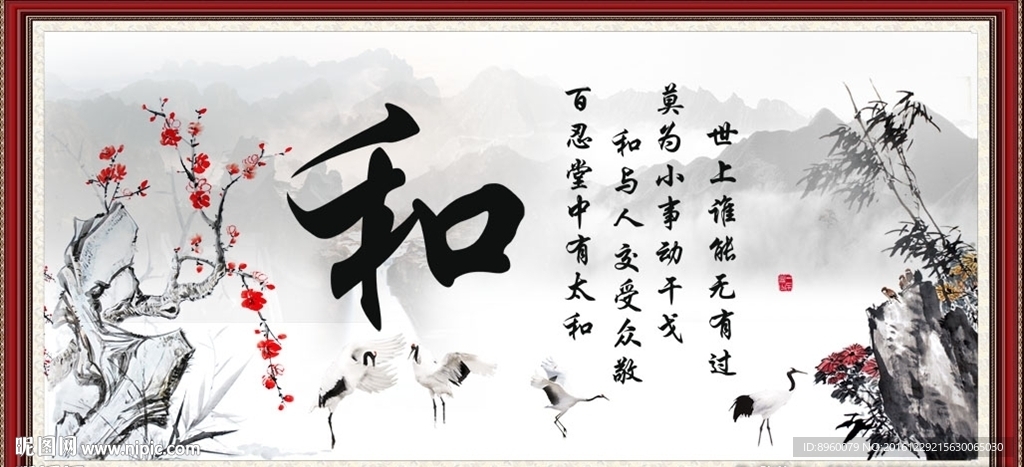 和
世上谁能无有过
莫为小事动干戈
和与人交受众敬
百忍堂中有太和
昵图网 www.nipic.com
ID:8960079 NO:20161229215630065030